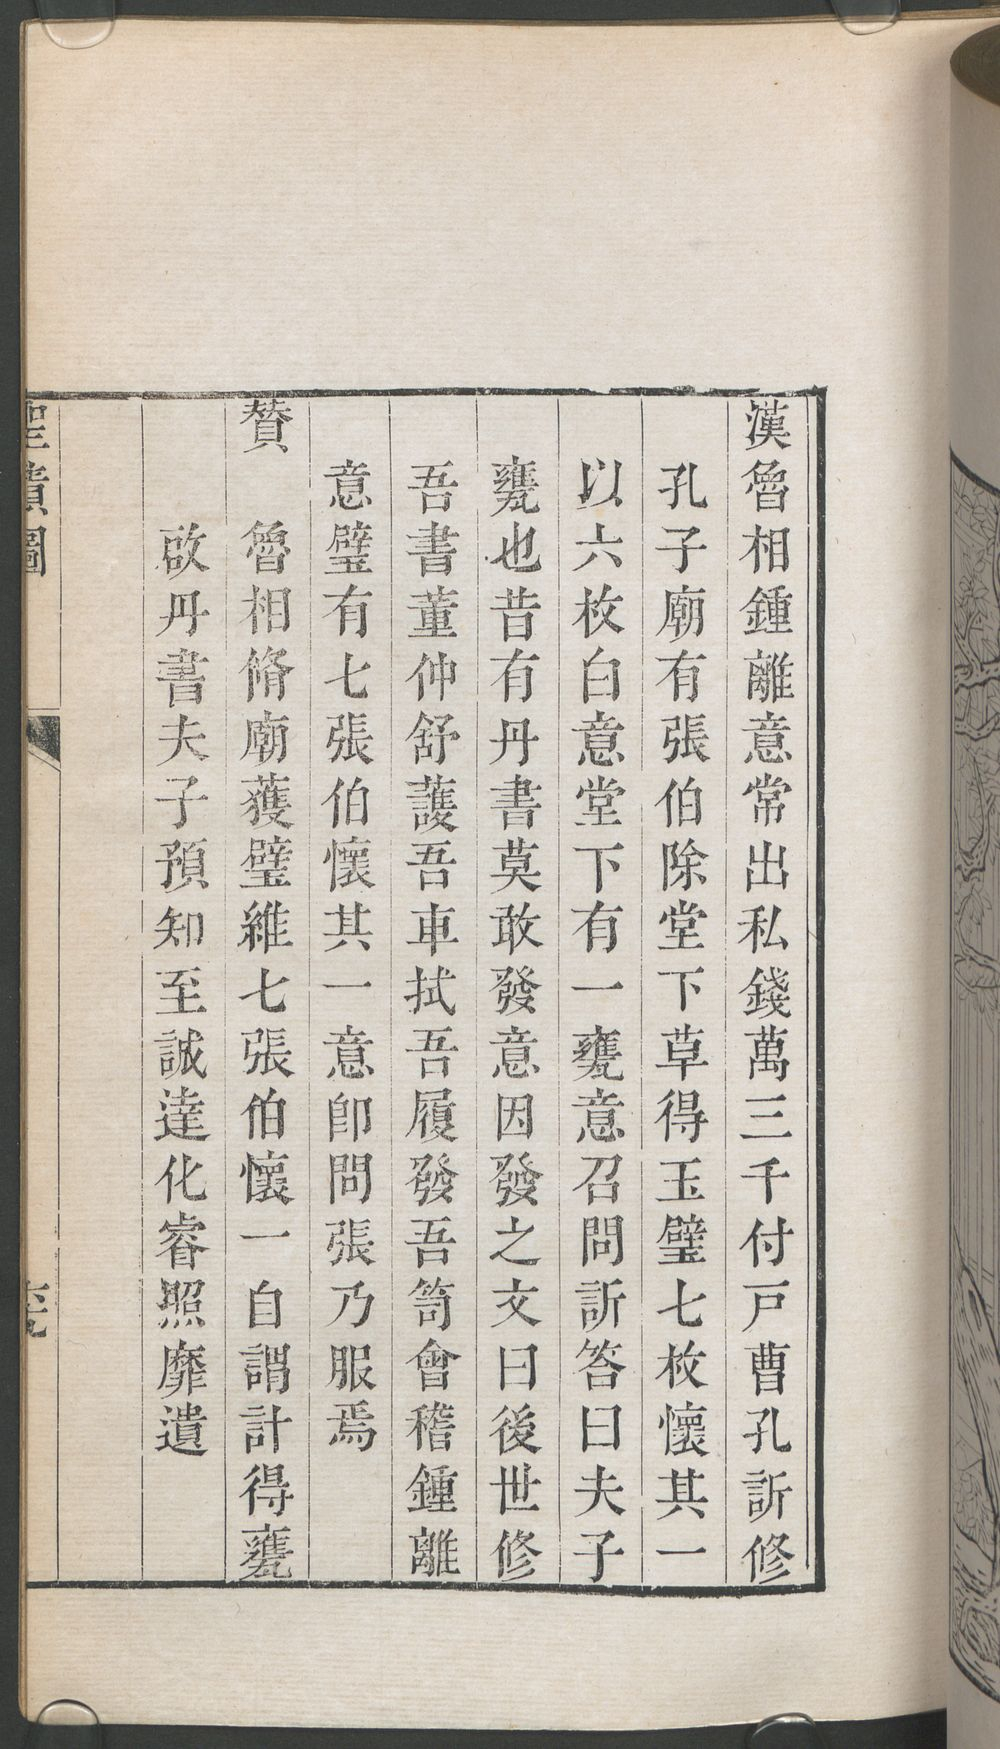 漢魯相鍾離意常出私錢萬三千付戸曹孔訢修
孔子廟有張伯除堂下草得玉璧七枚懷其一
以六枚白意堂下有一甕意召問訢答曰夫子
甕也昔有丹書莫敢發意因發之文曰後世修
吾書董仲舒護吾車拭吾履發吾笥會稽鍾離
意璧有七張伯懷其一意卽問張乃服焉
贊　魯相脩廟獲璧維七張伯懷一自謂計得甕
啟丹書夫子預知至誠達化睿照靡遺
聖蹟圖